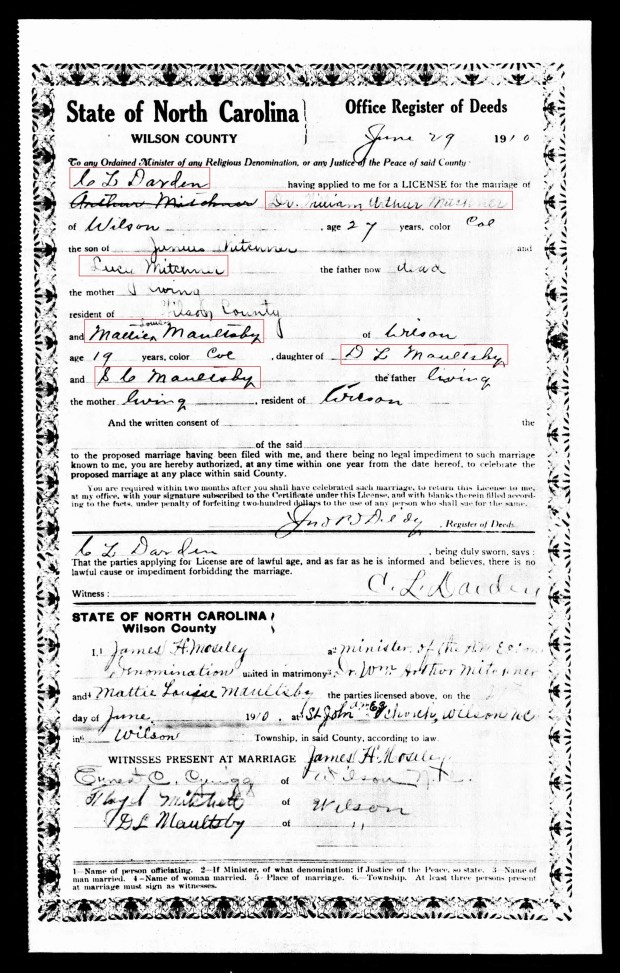 State of North Carolina Office Register of Deeds
WILSON COUNTY June 29 1910
To any Ordained Minister of any Religious Denomination, or any Justice of the Peace of said County:
C L Darden having applied to me for a LICENSE for the marriage of
Arthur Mitchner Dr. William Arthur Mitchner
of Wilson, age 27 years, color Col
the son of Junius Mitchner and
Lucy Mitchner the father now dead
the mother living
resident of Wilson County
and Mattie Louise Maultsby of Wilson
age 19 years, color Col, daughter of D L Maultsby
and S C Maultsby the father living
the mother living, resident of Wilson
And the written consent of the
of the said
to the proposed marriage having been filed with me, and there being no legal impediment to such marriage
known to me, you are hereby authorized, at any time within one year from the date hereof, to celebrate the
proposed marriage at any place within said County.
You are required within two months after you shall have celebrated such marriage, to return this License to me,
at my office, with your signature subscribed to the Certificate under this License, and with blanks therein filled accord-
ing to the facts, under penalty of forfeiting two-hundred dollars to the use of any person who shall sue for the same.
, Register of Deeds.
C L Darden, being duly sworn, says:
That the parties applying for License are of lawful age, and as far as he is informed and believes, there is no
lawful cause or impediment forbidding the marriage.
C. L. Darden
Witness:
STATE OF NORTH CAROLINA
Wilson County
I,1 James H. Moseley a2 minister of the
Denomination united in matrimony3 Dr Wm Arthur Mitchner
and4 Mattie Louise Maultsby the parties licensed above, on the
day of June 1910, at5 St John Church, Wilson NC
in6 Wilson Township, in said County, according to law.
James H. Moseley
WITNSSES PRESENT AT MARRIAGE
Ernest C. of Wilson N.C.
Floyd Mitchell of Wilson
D L Maultsby of "
1—Name of person officiating. 2—If Minister, of what denomination; if Justice of the Peace, so state. 3—Name of
man married. 4—Name of woman married. 5—Place of marriage. 6.—Township. At least three persons present
at marriage must sign as witnesses.